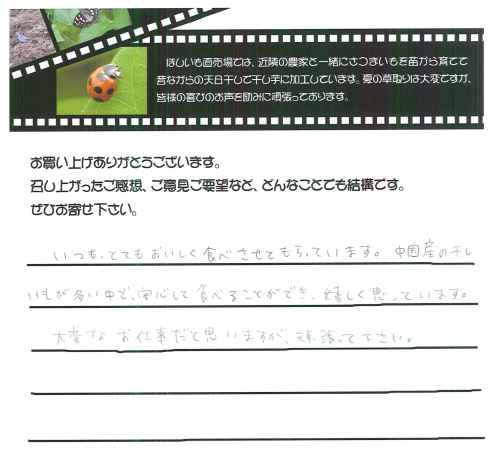 ほしいも直売場では、近隣の農家と一緒にさつまいもを苗から育てて
昔ながらの天日干しで干し芋に加工しています。夏の草取りは大変ですが、
皆様の喜びのお声を励みに頑張っております。
お買い上げありがとうございます。
召し上がったご感想、ご意見ご要望など、どんなことでも結構です。
ぜひお寄せ下さい。
いつも、とてもおいしく食べさせてもらっています。中国産の干し
いもが多い中で、安心して食べることができ、嬉しく思っています。
大変なお仕事だと思いますが、頑張って下さい。